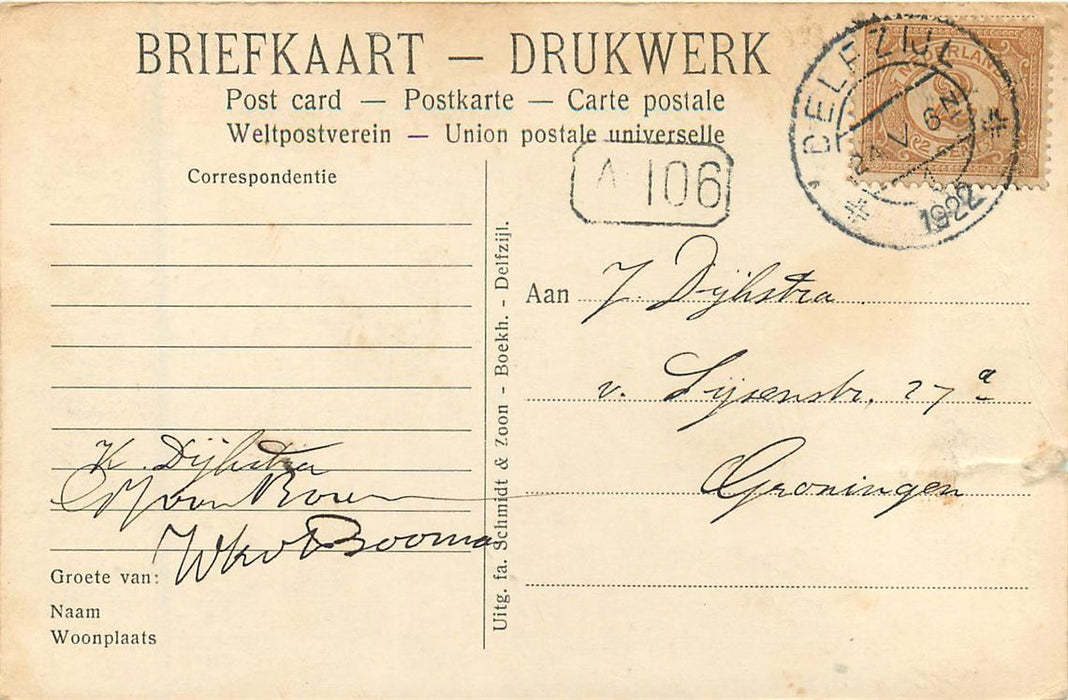 BRIEFKAART — DRUKWERK
Post card — Postkarte — Carte postale
Weltpostverein — Union postale universelle
NEDERLAND
DELFZIJL
24 V 6N
1922
A 106
Correspondentie
Aan J. Dijkstra
v. Lijsenstr. 27a
Groningen
K. Dijkstra
WkvBooma
Groete van:
Naam
Woonplaats
Uitg. fa. Schmidt & Zoon - Boekh. - Delfzijl.